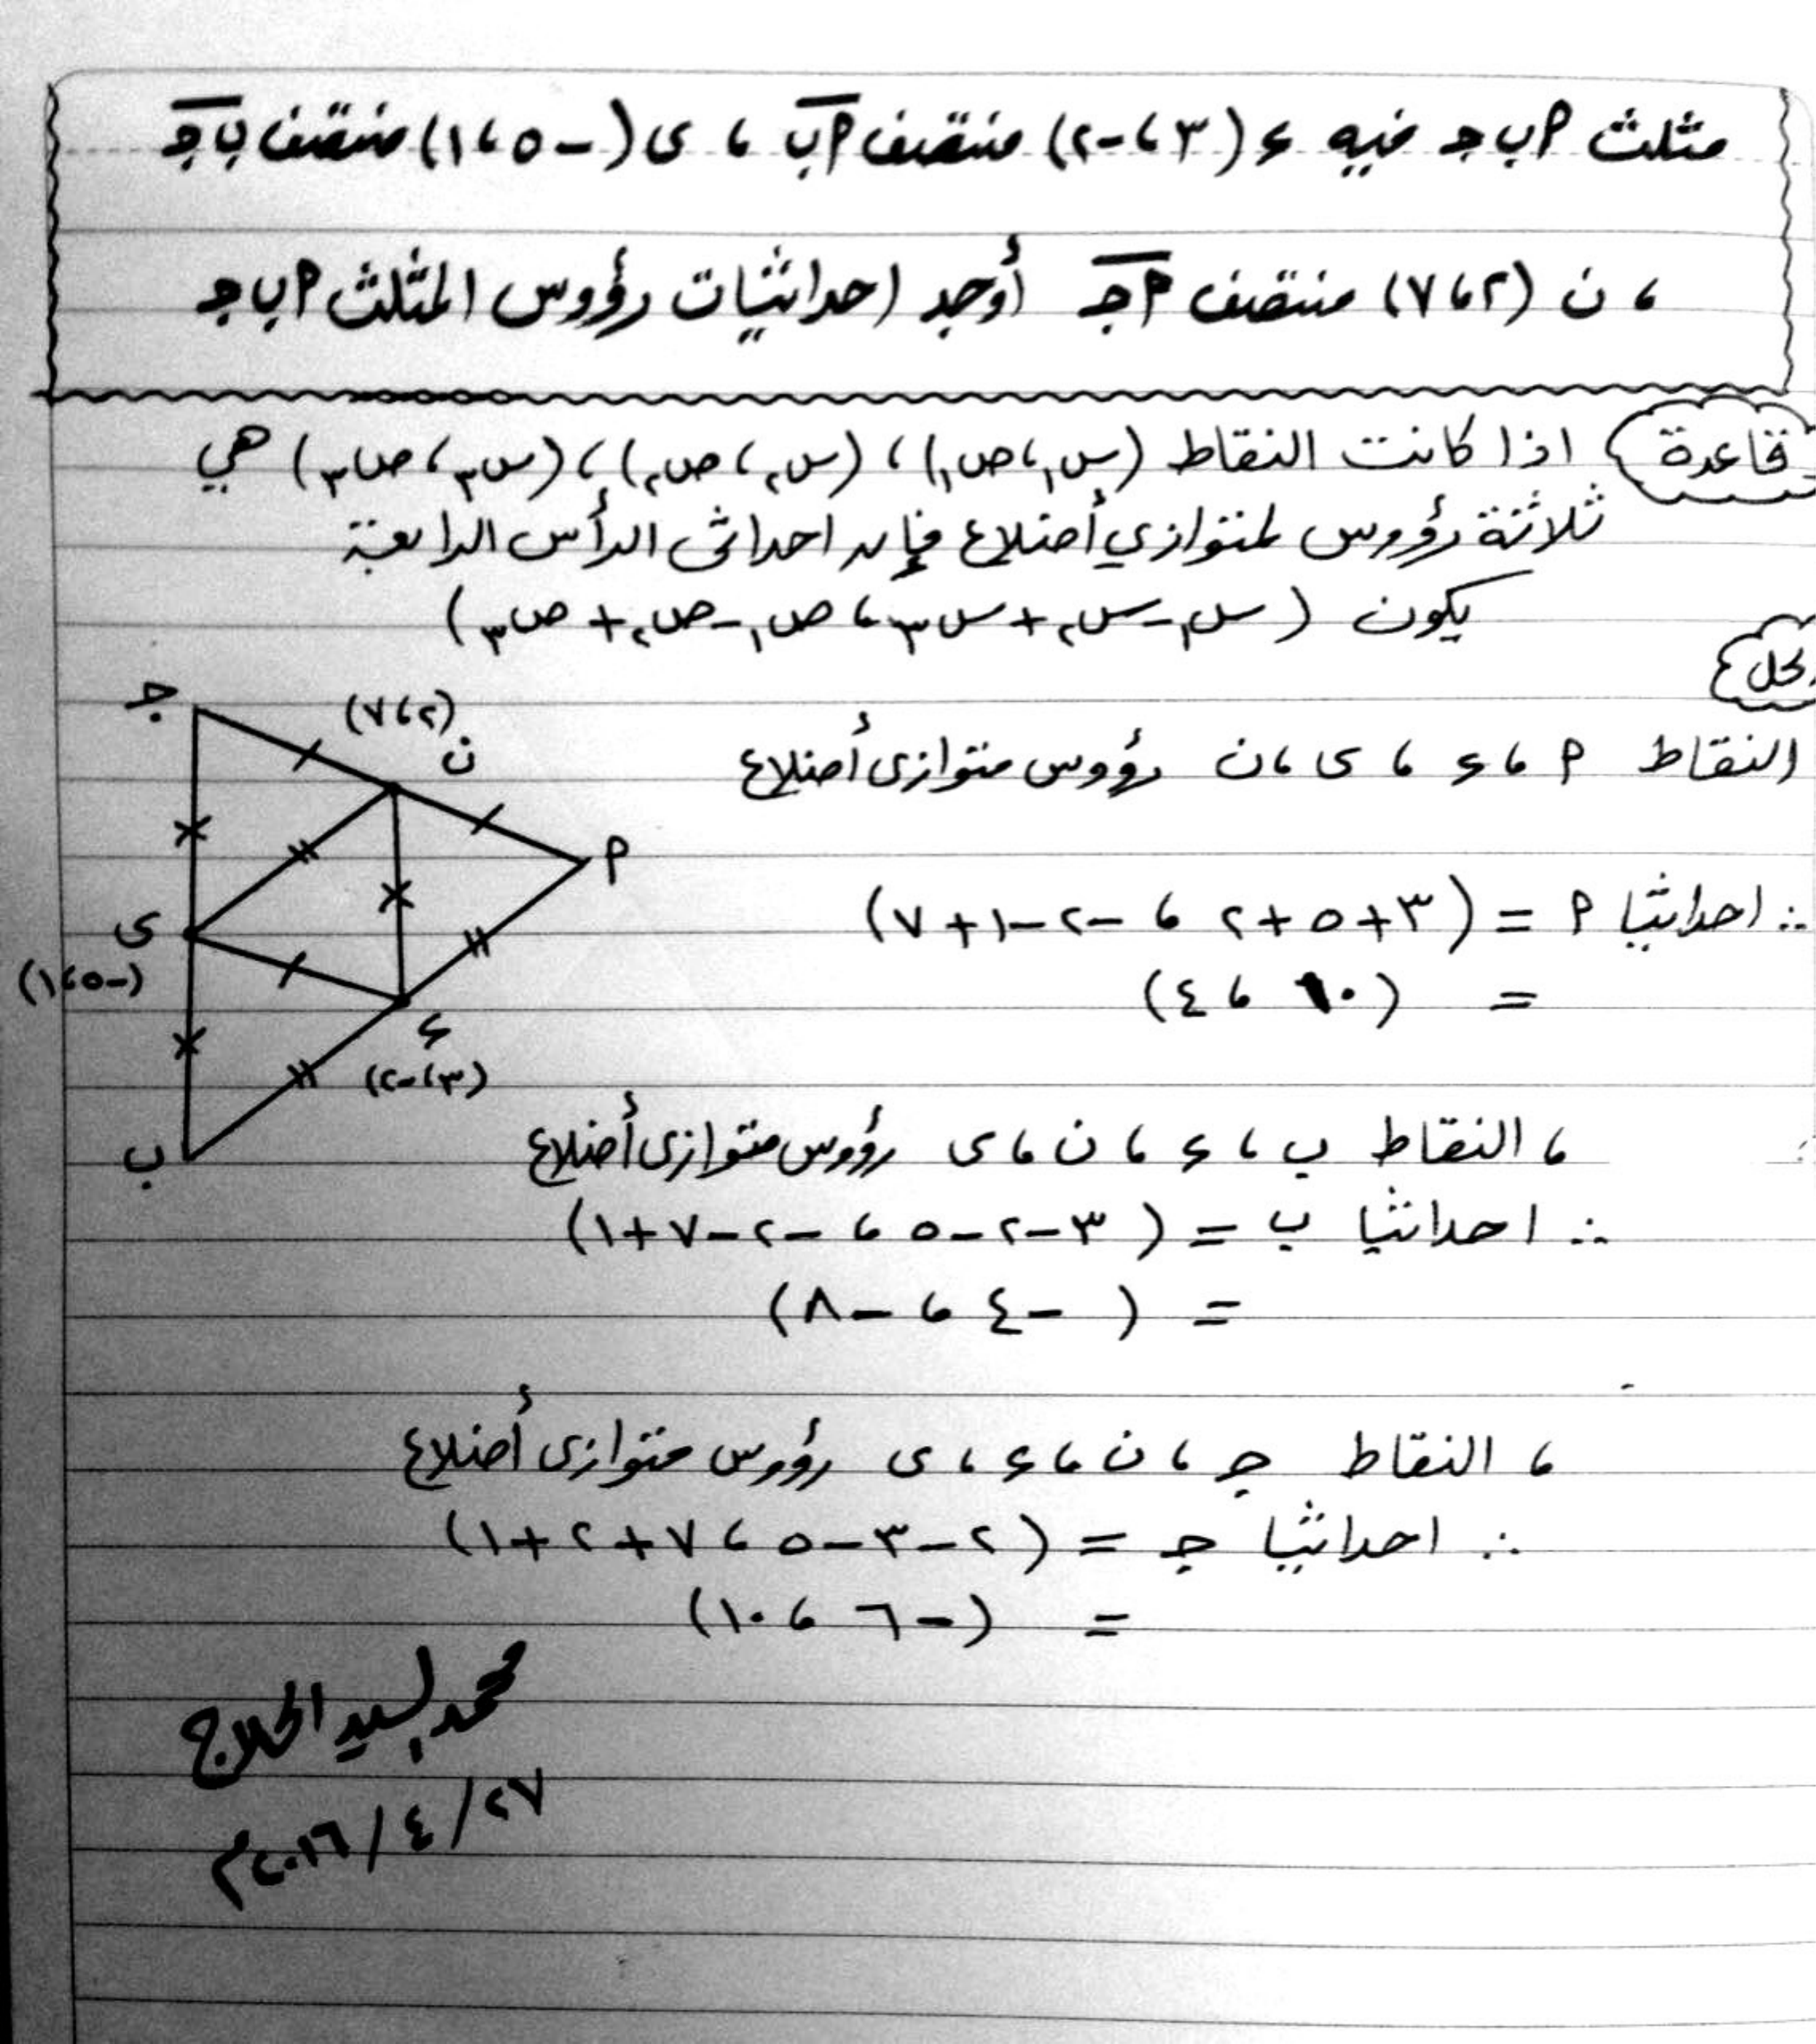 مثلث ٢ ب جـ فيه ء (٣ ، -٢) منتصف ٢ب ، ى (-٥ ، ١) منتصف ب جـ
، ن (٢ ، ٧) منتصف ٢جـ أوجد احداثيات رؤوس المثلث ٢ ب جـ
قاعدة اذا كانت النقاط (س١ ، ص١) ، (س٢ ، ص٢) ، (س٣ ، ص٣) هي
ثلاثة رؤوس لمتوازي أضلاع فإن احداثى الرأس الرابعة
يكون (س١ - س٢ + س٣ ، ص١ - ص٢ + ص٣)
لحل
النقاط ٢ ، ء ، ى ، ن رؤوس متوازى أضلاع
∴ احداثيا ٢ = (٣ + ٥ + ٢ ، -٢ - ١ + ٧)
= (١٠ ، ٤)
جـ
(٢ ، ٧)
ن
٢
ى
(-٥ ، ١)
ء
(٣ ، -٢)
ب
، النقاط ب ، ء ، ن ، ى رؤوس متوازى أضلاع
∴ احداثيا ب = (٣ - ٢ - ٥ ، -٢ - ٧ + ١)
= (-٤ ، -٨)
، النقاط جـ ، ن ، ء ، ى رؤوس متوازى أضلاع
∴ احداثيا جـ = (٢ - ٣ - ٥ ، ٧ + ٢ + ١)
= (-٦ ، ١٠)
محمد السيد الحلاج
٢٧ / ٤ / ٢٠١٦م